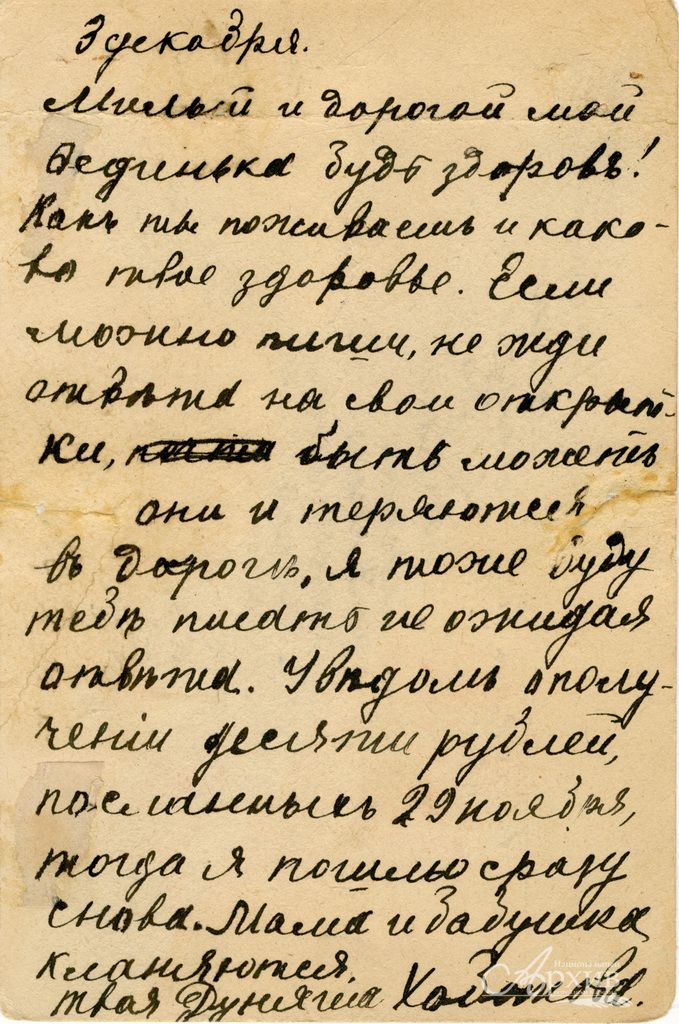 3 декабря.
Милый и дорогой мой
Фединька будь здоровъ!
Какъ ты поживаешь и како-
во твое здоровье. Если
можно пиши, не жди
отвѣта на свои открыт-
ки, быть можетъ
они и теряются
въ дорогѣ, я тоже буду
тебѣ писать не ожидая
отвѣта. Увѣдомь о полу-
ченіи десяти рублей,
посланныхъ 29 ноября,
тогда я пошлю сразу
снова. Мама и бабушка
кланяются.
твоя
Национальный
Архив